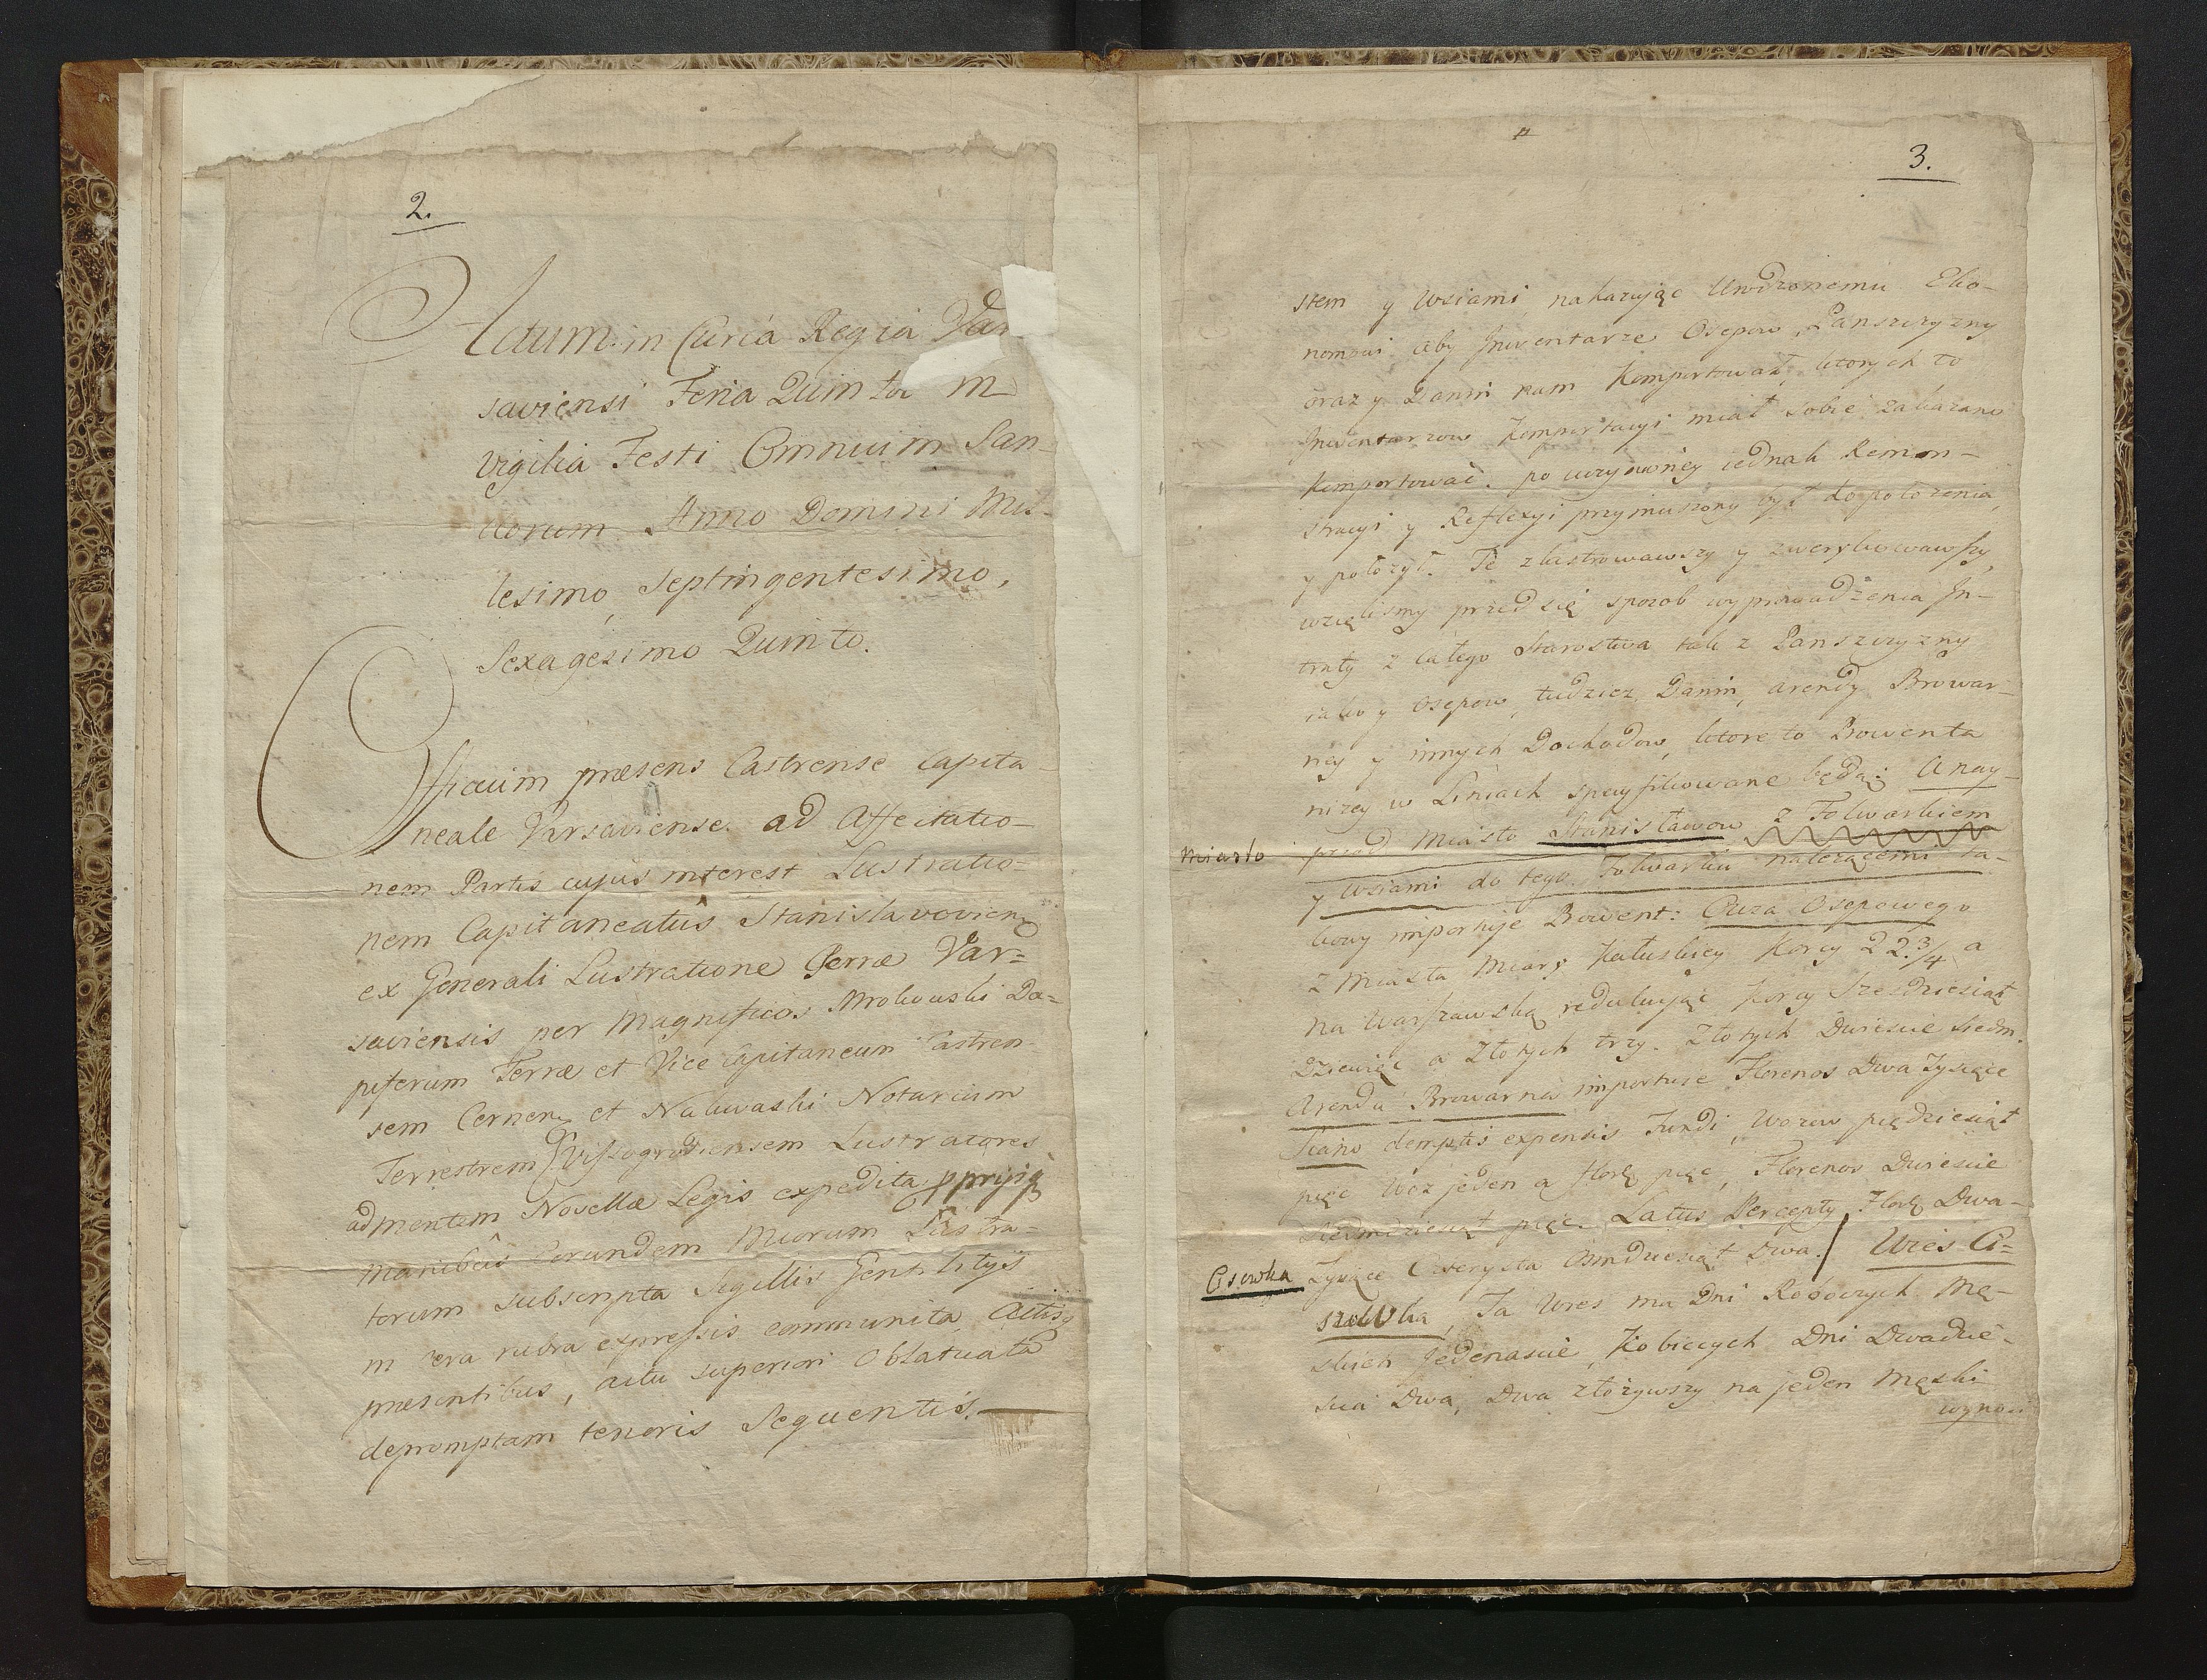 2.
Actum in Curia Regia Var
saviensi Feria Quinta in
Vigilia Festi Omnium San-
ctorum Anno Domini Mil-
lesimo, Septingentesimo,
Sexagesimo Quinto.
Officium præsens Castrense Capita-
neale Varsaviense. ad Affectatio-
nem Partis cujus interest Lustratio-
nem Capitaneatûs Stanislavovien
ex Generali Lustratione Terræ Var=
saviensis per Magnificos Mrokowski Da=
piferum Terræ et Vice Capitaneum Castren
sem Cernen et Nakwaski Notarium
Terrestrem Vissogrodiensem Lustratores
ad mentem Novellæ Legis expedita
manibûs Eorundem Mforum Lustra=
torum subscripta Sigillis Gentilitys
in cera rubra expressis communita, Actisq
præsentibus, actu superiori Oblatuata
depromptam tenoris Sequentis.
3.
stem y Wsiami, nakazując Urodzonemu Eko-
nomowi aby Inwentarze Osepow, Panszczyzny
oraz y Danin nam komportował, ktorych to
Inwentarzow komportacyi miał sobie zakazano
komportować. po uczynioney iednak Remon-
stracyi y Reflexyi przymuszony był do położenia
y położył. Te zlustrowawszy y zwerykowawszy,
wzięlismy przed się sposob wyprowadzenia In-
traty z całego Starostwa tak z Panszczyzny
iako y Osepow, tudziez Danin, arendy Browar-
ney y innych Dochodow, ktore to Prowenta
niżey w Liniach specyfikowane będą: A nay-
Miasto
przod Miasto Stanisławow z Folwarkiem
y Wsiami do tego Folwarku należącemi ta-
kowy importuje Prowent: Owsa Osepowego
z Miasta Miary Kałuskiey Korcy 22 3/4 a
na Warszawską redukując Korcy Szesdziesiąt
Dziewięć a Złotych trzy. Złotych Dwiescie Siedm.
Arenda Browarna importuie Florenos Dwa Tysiące
Siano demptis expensis Fundi, Wozow pięćdziesiąt
pięć Woz jeden a flore pięc, Florenos Dwiescie
siedmdziesiąt pięc. Latus Percepty Flore Dwa-
Tysiące Czterysta Osmdziesiąt Dwa. / Wies Ci=
Cisowka
szówka, Ta Wies ma Dni Robowych Mę-
skich Jedenascie, Kobiecych Dni Dwadzie-
scia Dwa, Dwa złożywszy na jeden Męski
wynosi